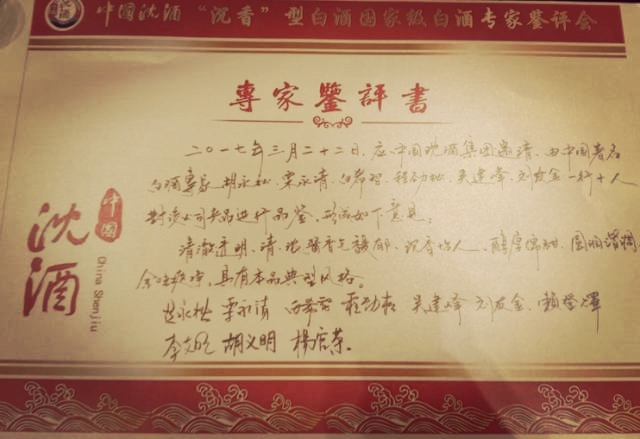 中國沈酒“沉香”型白酒國家級白酒专家鉴评会
專家鑒評書
二〇一七年三月二十二日，应中国沈酒集团邀请，由中国著名
白酒专家胡永松、栗永清、白希智、程劲松、吴建峰、刘友金一行十人
对该公司产品进行品鉴，形成如下意见。
清澈透明、清、浓酱香气馥郁、沉香怡人、醇厚绵甜、圆润谐调
余味爽净，具有本品典型风格。
胡永松 栗永清 白希智 程劲松 吴建峰 刘友金 賴登燡
李 胡义明 楊官荣
中国
沈酒
China Shenjiu